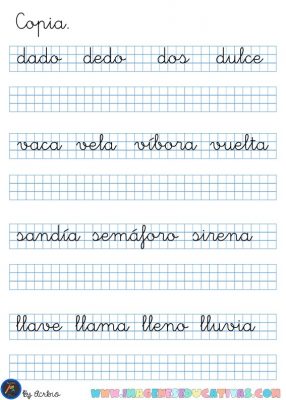 Copia.
dado dedo dos dulce
vaca vela víbora vuelta
sandía semáforo sirena
llave llama lleno lluvia
WWW.IMAGENESEDUCATIVAS.COM